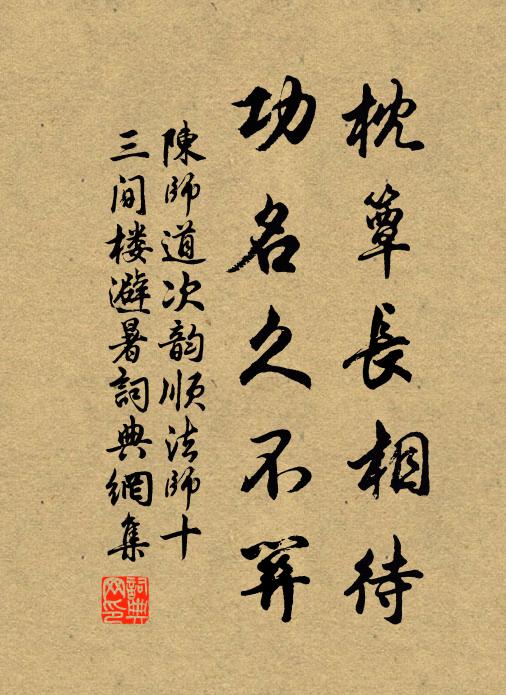 枕簟長相待
功名久不算
陳師道次韵順法師十
三间楼避暑詞典網集
詞典网印